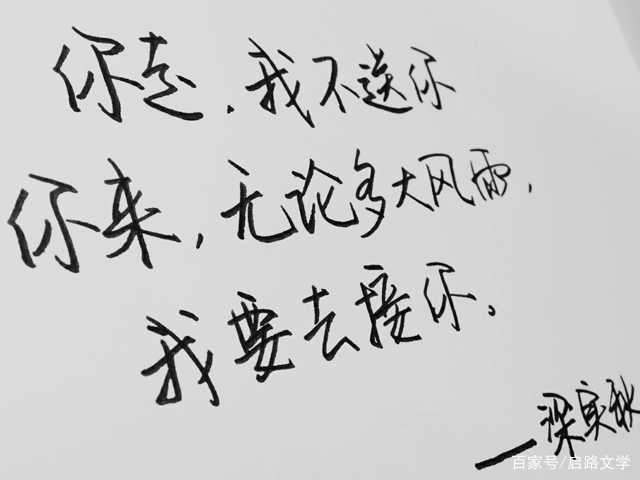 你走，我不送你
你来，无论多大风雨，
我要去接你。
—深实秋
百家号/启路文学